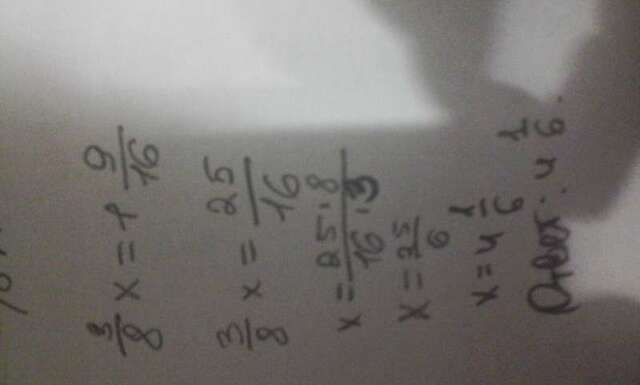 3/8 x = 1 9/16
3/8 x = 25/16
x = 25·8/16·3
x = 25/6
x = 4 1/6
Ответ: 4 1/6.